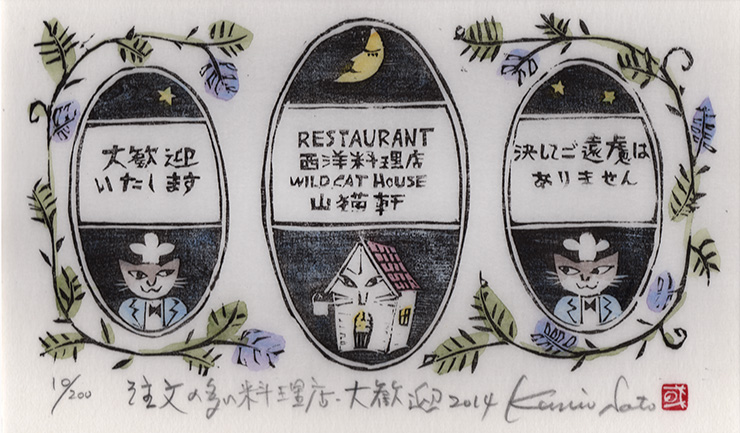 大歓迎
いたします
RESTAURANT
西洋料理店
WILD CAT HOUSE
山猫軒
決してご遠慮は
ありません
10/200 注文の多い料理店・大歓迎 2014 Kunio Sato